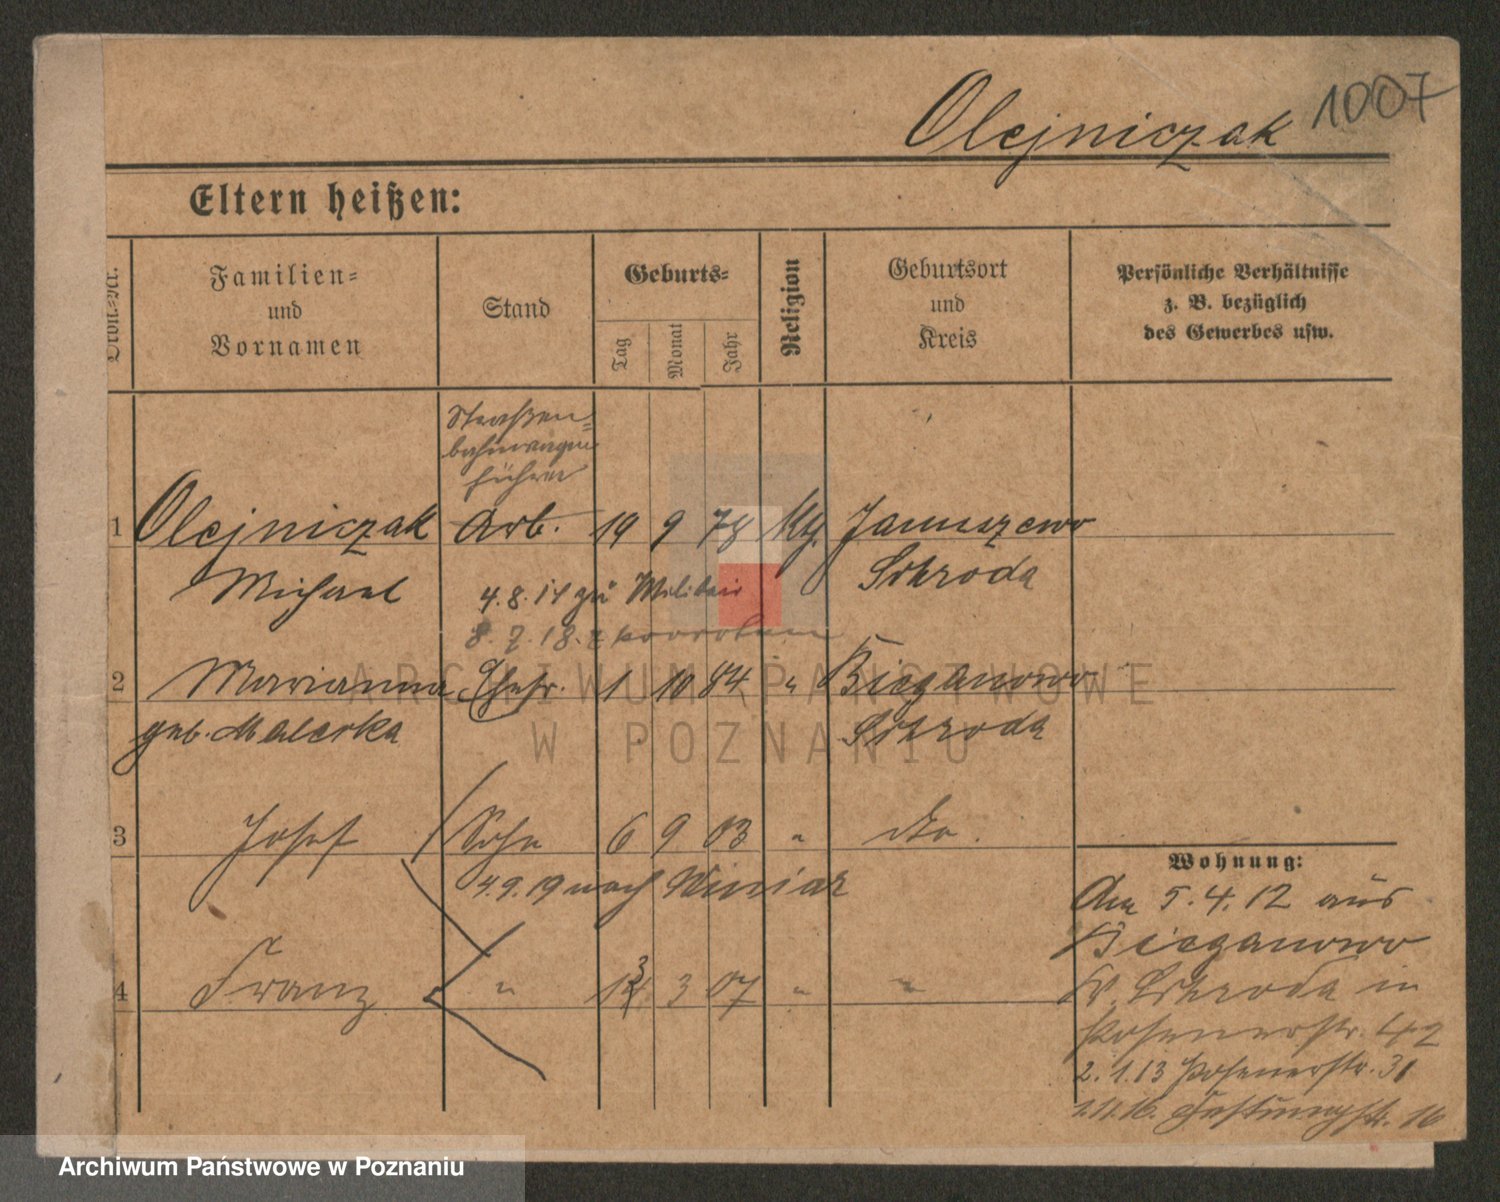 Olejniczak 1007
Eltern heißen:
Ordn.-Nr.
Familien-
und
Vornamen
Stand
Geburts-
Tag
Monat
Jahr
Religion
Geburtsort
und
Kreis
Persönliche Verhältnisse
z. B. bezüglich
des Gewerbes usw.
Straßen-
bahnwagen
führer
1 Olejniczak Arb. 19 9 78 Januszewo
Michael Schroda
4.8.14 zu Militair
8.7.18. z
2 Marianna Ehefr. 1 10 84 " Bieganowo
geb. Malerka Schroda
3 Josef Sohn 6 9 03 " dto.
4.9.19 nach Winiar
4 Franz " 13 3 07 " "
Wohnung:
Am 5.4.12 aus
Bieganowo
Kr. Schroda in
Posenerstr. 42
2.1.13 Posenerstr. 31
1.11.16. Festungsstr. 16
ARCHIWUM PAŃSTWOWE
W POZNANIU
Archiwum Państwowe w Poznaniu